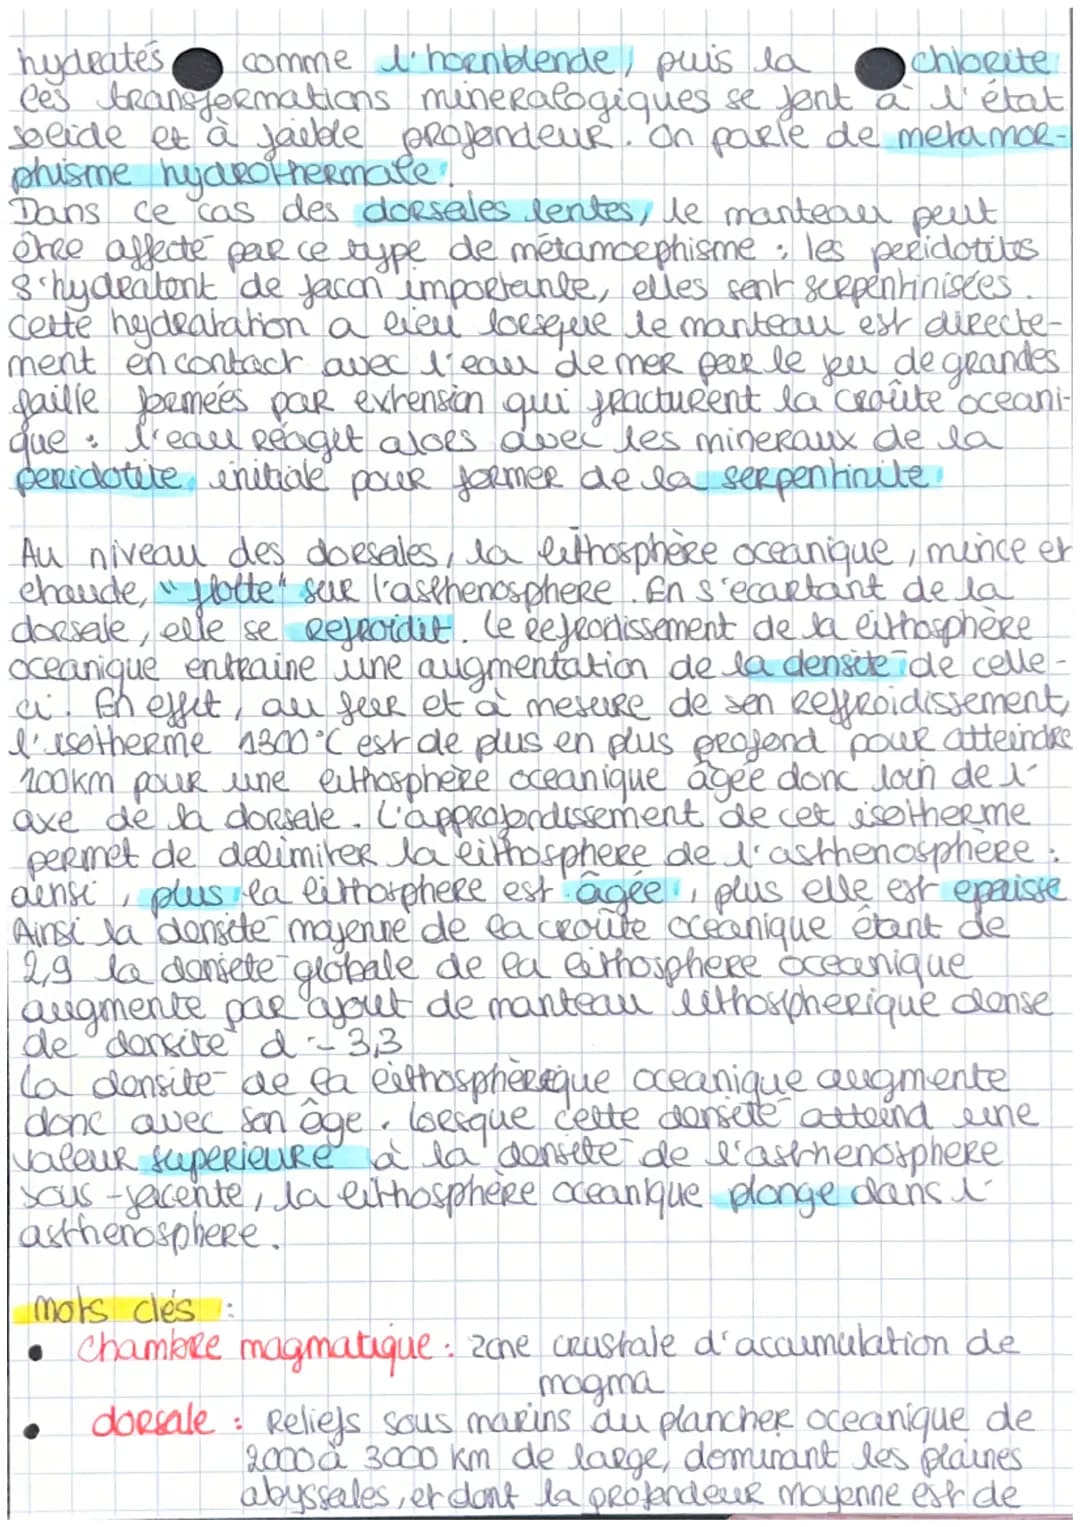 hydratés comme l'hornblende, puis la chlorite
ces transformations mineralogiques se font à l'état
solide et à faible profondeur. On parle de metamor-
phisme hydrothermale.
Dans ce cas des dorsales lentes, le manteau peut
être affecté par ce type de métamorphisme : les peridotites
s'hydratent de facon importante, elles sont serpentinisées.
Cette hydratation a lieu lorseque le manteau est directe-
ment en contact avec l'eau de mer par le jeu de grandes
faille formées par extension qui fracturent la croûte oceani-
que : l'eau réagit alors avec les mineraux de la
peridotite initiale pour former de la serpentinite.
Au niveau des dorsales, la lithosphère oceanique, mince et
chaude, "flotte" sur l'asthenosphere. En s'ecartant de la
dorsale, elle se refroidit. Le refroidissement de la lithosphère
oceanique entraine une augmentation de la densité de celle-
ci. En effet, au fur et à mesure de son reffroidissement,
l'isotherme 1300°C est de plus en plus profond pour atteindre
100km pour une lithosphère oceanique âgée donc loin de l'
axe de la dorsale. L'approfondissement de cet isotherme
permet de delimiter la lithosphere de l'asthenosphère :
ainsi, plus la lithosphere est âgée, plus elle est epaisse
Ainsi la densité moyenne de la croûte oceanique étant de
2,9 la densité globale de la lithosphere oceanique
augmente par ajout de manteau lithospherique dense
de densité d ~ 3,3
La densité de la lithosphèreique oceanique augmente
donc avec son âge. Lorsque cette densité atteind une
valeur superieure à la densité de l'asthenosphere
sous-jacente, la lithosphère oceanique plonge dans l'
asthenosphere.
mots clés :
• chambre magmatique : zone crustale d'accumulation de
magma
• dorsale : Reliefs sous marins du plancher oceanique de
2000 à 3000 km de large, dominant les plaines
abyssales, et dont la profondeur moyenne est de